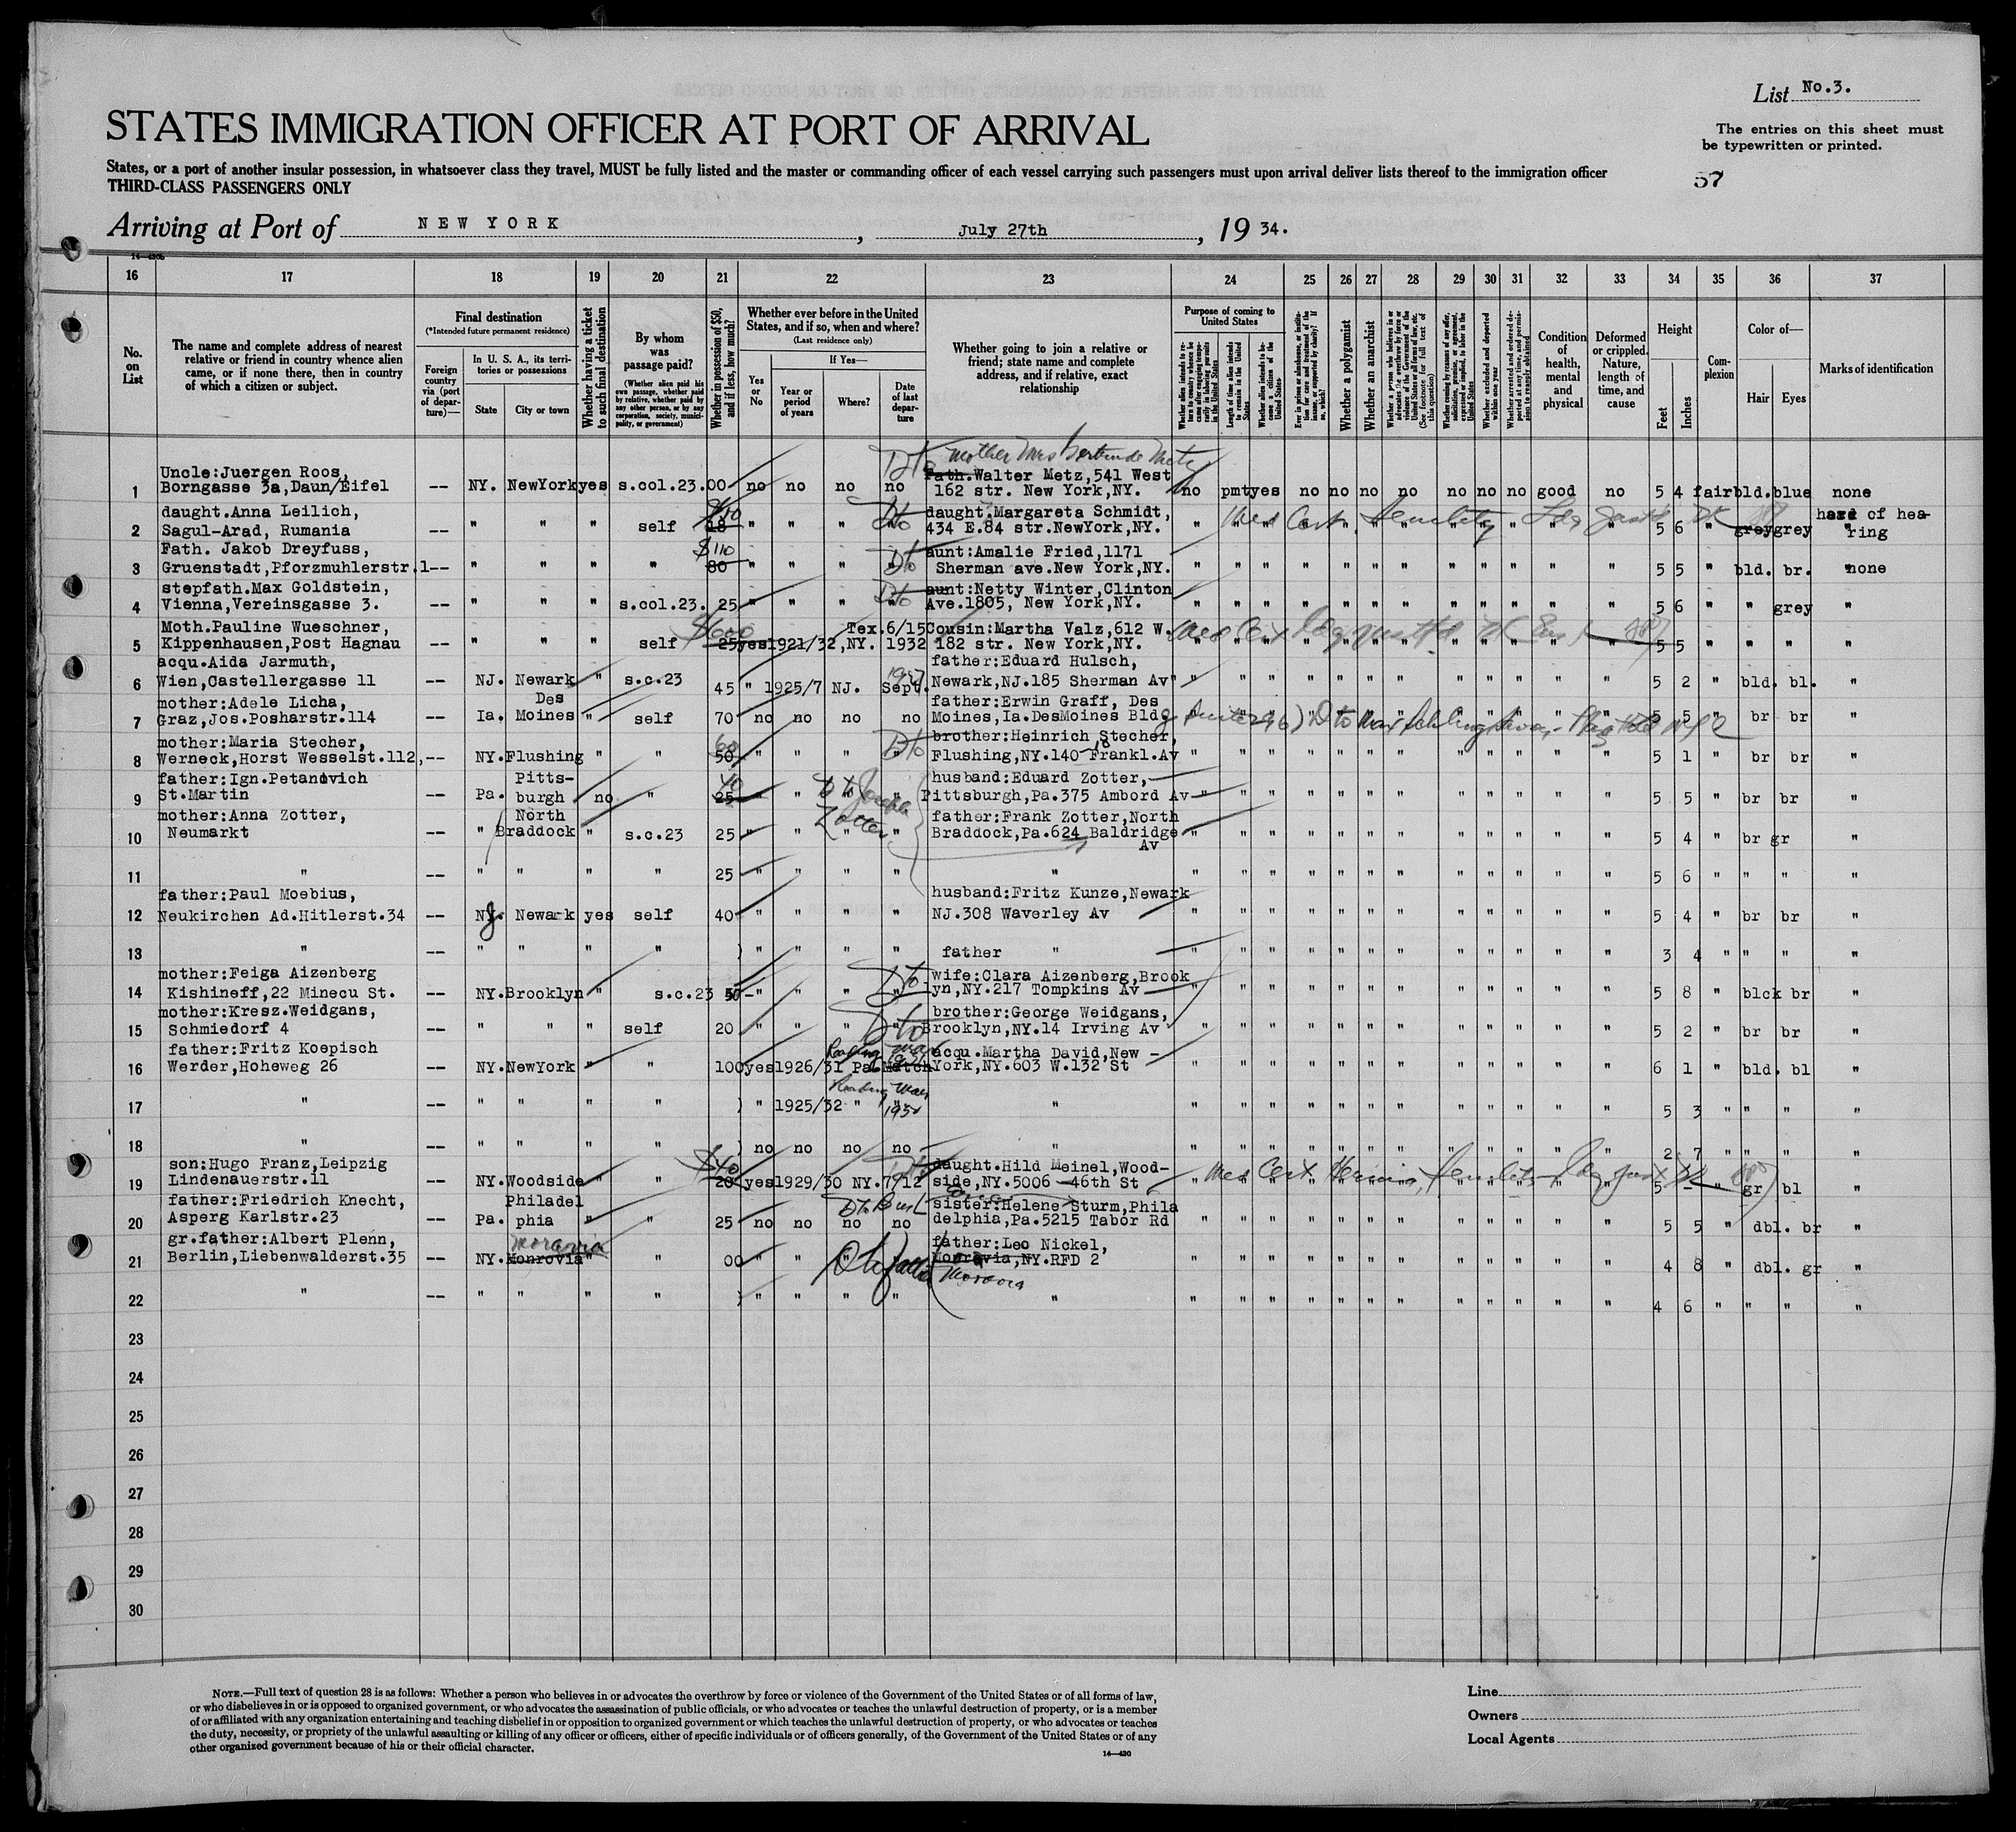 List No.3.
STATES IMMIGRATION OFFICER AT PORT OF ARRIVAL
The entries on this sheet must
be typewritten or printed.
States, or a port of another insular possession, in whatsoever class they travel, MUST be fully listed and the master or commanding officer of each vessel carrying such passengers must upon arrival deliver lists thereof to the immigration officer
THIRD-CLASS PASSENGERS ONLY
57
Arriving at Port of NEW YORK, July 27th, 19 34.
16 17 18 19 20 21 22 23 24 25 26 27 28 29 30 31 32 33 34 35 36 37
No. on List
The name and complete address of nearest relative or friend in country whence alien came, or if none there, then in country of which a citizen or subject.
Final destination
(*Intended future permanent residence)
Foreign country via (port of departure)—
In U. S. A., its territories or possessions
State
City or town
Whether having a ticket to such final destination
By whom was passage paid?
(Whether alien paid his own passage, whether paid by relative, whether paid by any other person, or by any corporation, society, municipality, or government)
Whether in possession of $50, and if less, how much?
Whether ever before in the United States, and if so, when and where?
(Last residence only)
Yes or No
If Yes—
Year or period of years
Where?
Date of last departure
Whether going to join a relative or friend; state name and complete address, and if relative, exact relationship
Purpose of coming to United States
Whether a polygamist
Whether an anarchist
Condition of health, mental and physical
Deformed or crippled. Nature, length of time, and cause
Height
Feet
Inches
Complexion
Color of—
Hair
Eyes
Marks of identification
mother Mrs Gertrude Metz
Uncle:Juergen Roos, Fath.Walter Metz,541 West
1 Borngasse 3a,Daun/Eifel -- NY. NewYork yes s.col.23.00 no no no no 162 str. New York,NY. no pmt yes no no no no no no no good no 5 4 fair bld. blue none
daught.Anna Leilich, $50 daught.Margareta Schmidt, hard of hea-
2 Sagul-Arad, Rumania -- " " " self 18 " " " " 434 E.84 str.NewYork,NY. " 5 6 " grey grey ring
Fath. Jakob Dreyfuss, $110 aunt:Amalie Fried,1171
3 Gruenstadt,Pforzmuhlerstr.1-- " " " " 80 " " " " Sherman ave.New York,NY. " 5 5 " bld. br. none
stepfath.Max Goldstein, aunt:Netty Winter,Clinton
4 Vienna,Vereinsgasse 3. -- " " " s.col.23. 25 " " " " Ave.1805, New York,NY. " 5 6 " " grey "
Moth.Pauline Wueschner, $600 Tex.6/15 Cousin:Martha Valz,612 W.
5 Kippenhausen,Post Hagnau -- " " " self 25 yes 1921/32,NY. 1932 182 str. New York,NY. " 5 5 " " " "
acqu.Aida Jarmuth, father:Eduard Hulsch,
6 Wien,Castellergasse 11 -- NJ. Newark " s.c.23 45 " 1925/7 NJ. Sept. 1927 Newark,NJ.185 Sherman Av " 5 2 " bld. bl. "
mother:Adele Licha, Des father:Erwin Graff, Des
7 Graz,Jos.Posharstr.114 -- Ia. Moines " self 70 no no no no Moines,Ia.DesMoines Bldg " 5 5 " br br "
mother:Maria Stecher, 60 brother:Heinrich Stecher,
8 Werneck,Horst Wesselst.112,-- NY.Flushing " " 50 " " " " Flushing,NY.140-Frankl.Av " 5 1 " br br "
father:Ign.Petanovich Pitts- 40 husband:Eduard Zotter,
9 St.Martin Pa. burgh no " 25 " " " " Pittsburgh,Pa.375 Ambord Av " 5 5 " br br "
Joseph Zotter
mother:Anna Zotter, North father:Frank Zotter,North
10 Neumarkt -- " Braddock " s.c.23 25 " " " " Braddock,Pa.624 Baldridge Av " 5 4 " br gr "
11 " -- " " " " 25 " " " " " " 5 6 " " " "
father:Paul Moebius, husband:Fritz Kunze,Newark
12 Neukirchen Ad.Hitlerst.34 -- NJ. Newark yes self 40 " " " " NJ.308 Waverley Av " 5 4 " br br "
13 " -- " " " " ) " " " " father " " 3 4 " " " "
mother:Feiga Aizenberg wife:Clara Aizenberg,Brook
14 Kishineff,22 Minecu St. -- NY.Brooklyn " s.c.23 " " " " lyn,NY.217 Tompkins Av " 5 8 " blck br "
mother:Kresz.Weidgans, brother:George Weidgans,
15 Schmiedorf 4 -- " " " self 20 " " " " Brooklyn,NY.14 Irving Av " 5 2 " br br "
father:Fritz Koepisch acqu.Martha David,New -
16 Werder,Hoheweg 26 -- NY.NewYork " " 100 yes 1926/31 Pa. York,NY.603 W.132 St " 6 1 " bld. bl "
17 " -- " " " " ) " 1925/32 " " " " 5 3 " " " "
18 " -- " " " " ) no no no no " " 2 7 " " " "
son:Hugo Franz,Leipzig $40 daught.Hild Meinel,Wood-
19 Lindenauerstr.11 -- NY.Woodside " " 20 yes 1929/30 NY.7/12 side,NY.5006 -46th St " 5 - " gr bl "
father:Friedrich Knecht, Philadel sister:Helene Sturm,Phila
20 Asperg Karlstr.23 -- Pa. phia " " 25 no no no no delphia,Pa.5215 Tabor Rd " 5 5 " dbl. br "
gr.father:Albert Plenn, Moravia father:Leo Nickel,
21 Berlin,Liebenwalderst.35 -- NY.Monrovia " " 00 " " " " Monrovia,NY.RFD 2 " 4 8 " dbl. gr "
Moravia
22 " -- " " " " ) " " " " " " 4 6 " " " "
23
24
25
26
27
28
29
30
NOTE.—Full text of question 28 is as follows: Whether a person who believes in or advocates the overthrow by force or violence of the Government of the United States or of all forms of law,
or who disbelieves in or is opposed to organized government, or who advocates the assassination of public officials, or who advocates or teaches the unlawful destruction of property, or is a member
of or affiliated with any organization entertaining and teaching disbelief in or opposition to organized government or which teaches the unlawful destruction of property, or who advocates or teaches
the duty, necessity, or propriety of the unlawful assaulting or killing of any officer or officers, either of specific individuals or of officers generally, of the Government of the United States or of any
other organized government because of his or their official character.
14—430
Line
Owners
Local Agents